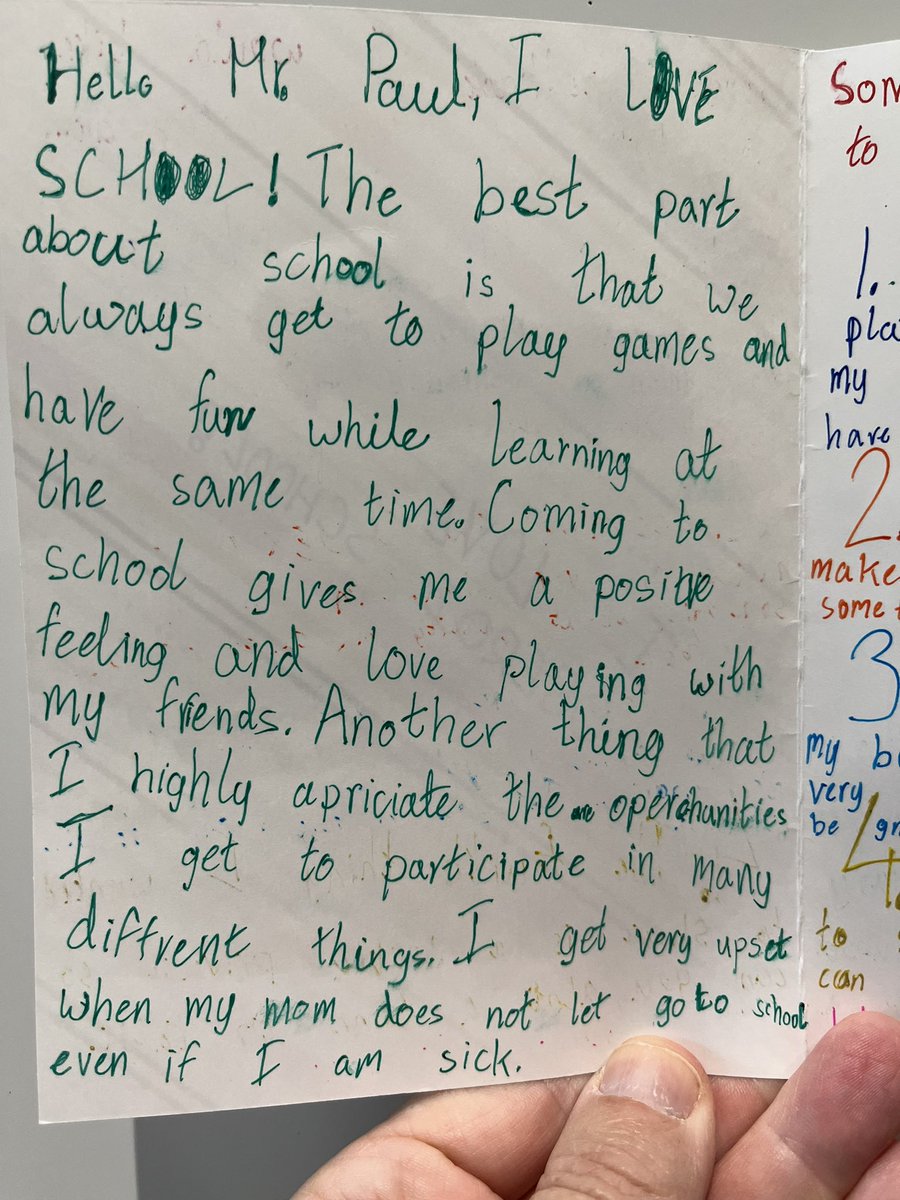 Hello Mr. Paul, I LOVE
SCHOOL! The best part
about school is that we
always get to play games and
have fun while learning at
the same time. Coming to
school gives me a positive
feeling and love playing with
my friends. Another thing that
I highly apriciate the operchunities
I get to participate in many
diffrent things. I get very upset
when my mom does not let go to school
even if I am sick.
Som
to
1.
pla
my
have
2.
make
some t
3
my be
very
be gr
4
to
can